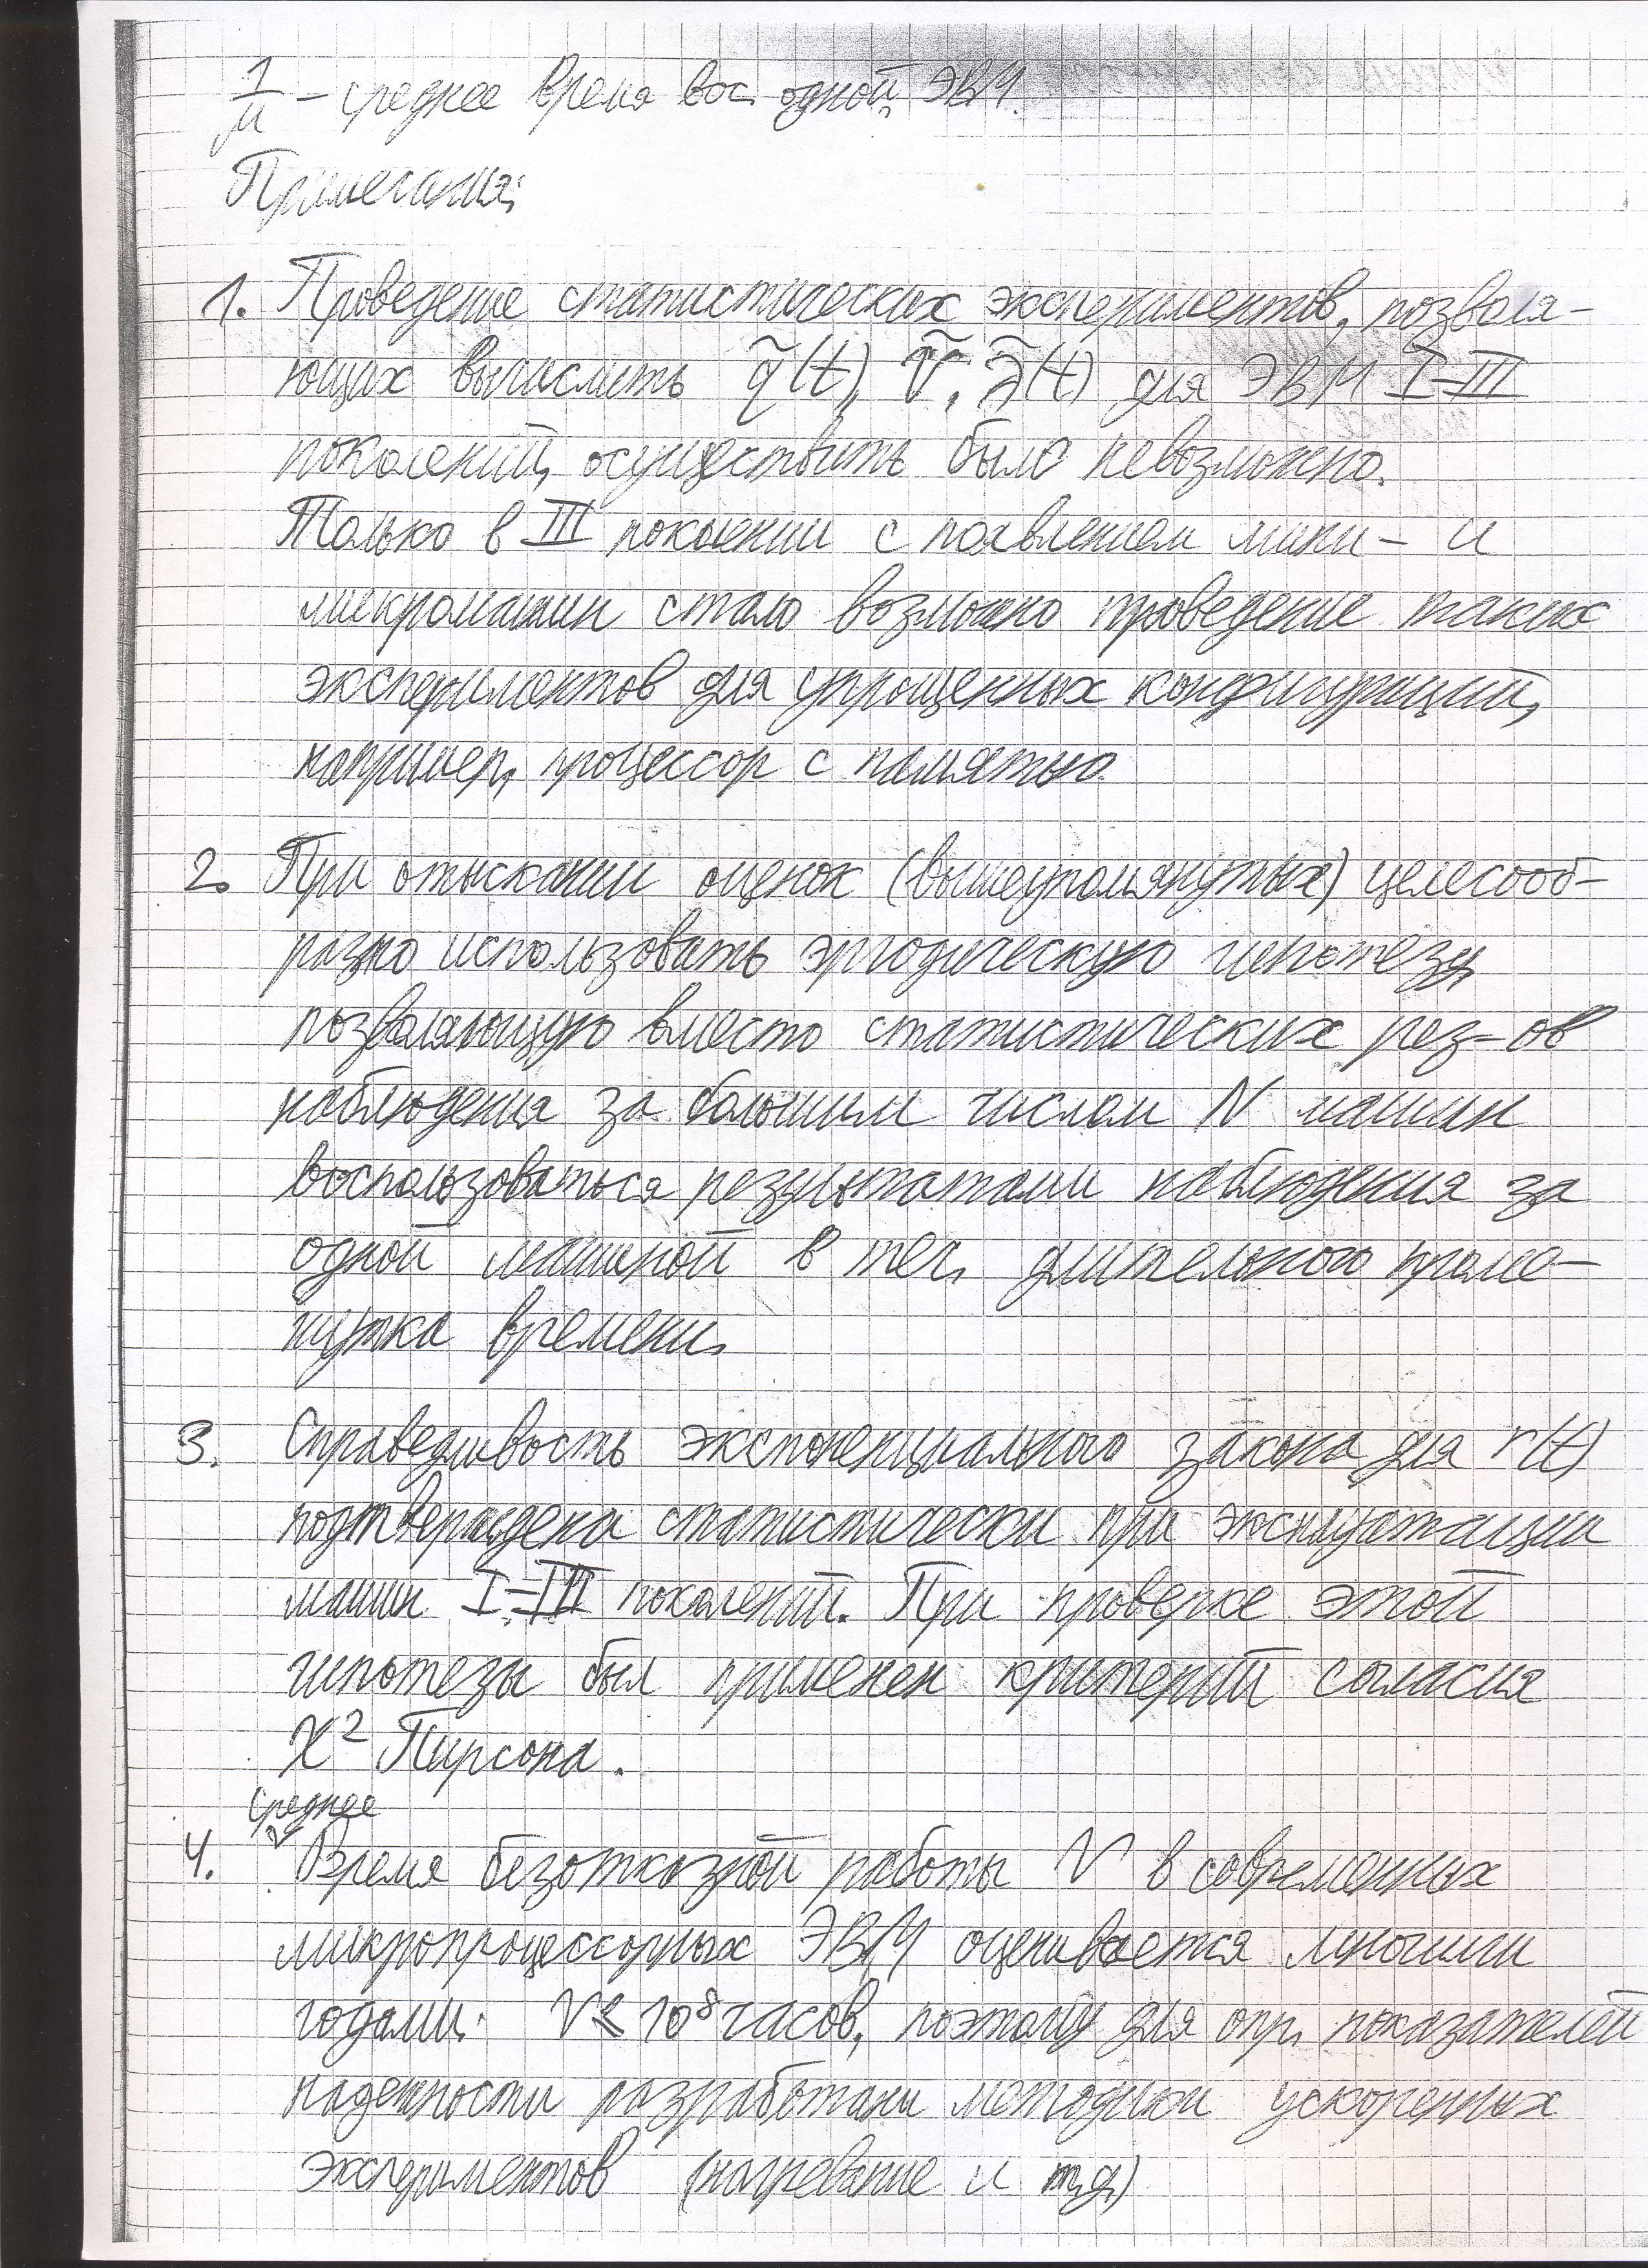 1/μ – среднее время вос. одной ЭВМ.
Примечания:
1. Проведение статистических экспериментов, позволя-
ющих вычислить q̃(t), Ṽ, λ̃(t) для ЭВМ I-III
поколений, осуществить было невозможно.
Только в III поколении с появлением мини- и
микромашин стало возможно проведение таких
экспериментов для упрощенных конфигураций,
например, процессор с памятью.
2. При отыскании оценок (вышеупомянутых) целесооб-
разно использовать эргодическую гипотезу,
позволяющую вместо статистических рез-ов
наблюдения за большим числом N машин
воспользоваться результатами наблюдения за
одной машиной в теч. длительного проме-
жутка времени.
3. Справедливость экспоненциального закона для r(t)
подтверждена статистически при эксплуатации
машин I-III поколений. При проверке этой
гипотезы был применен критерий согласия
X² Пирсона.
среднее
4. Время безотказной работы V в современных
микропроцессорных ЭВМ оценивается многими
годами. V ≤ 10⁸ часов, поэтому для опр. показателей
надежности разработаны методики ускоренных
экспериментов (нагревание и т.д.)